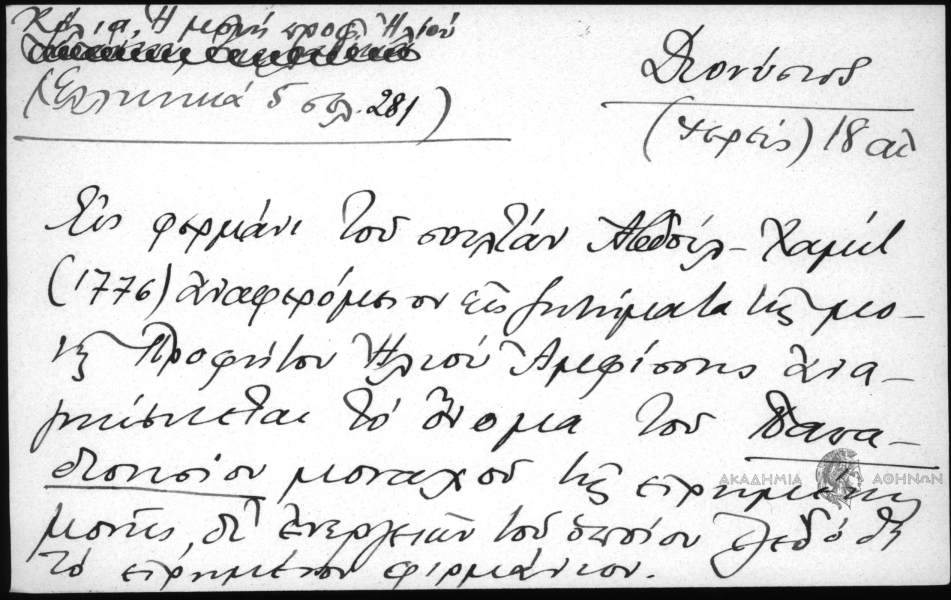 Ἡ μονή προφ. Ἠλιού
(Ἑλληνικά 5 σελ. 281)
Διονύσιος
(ἱερεύς) 18 αἰ
Εἰς φερμάνι τοῦ σουλτάν Ἀβδούλ-Χαμίτ
(1776) ἀναφερόμενον εἰς ζητήματα τῆς μο-
νῆς Προφήτου Ἠλιού Ἀμφίσσης ἀνα-
μιμνήσκεται τό ὄνομα τοῦ Παπα-
διονυσίου μοναχοῦ τῆς εἰρημένης
μονῆς, δι' ἐνεργειῶν τοῦ ὁποίου ἐξεδόθη
τό εἰρημένον φιρμάνιον.
ΑΚΑΔΗΜΙΑ ΑΘΗΝΩΝ